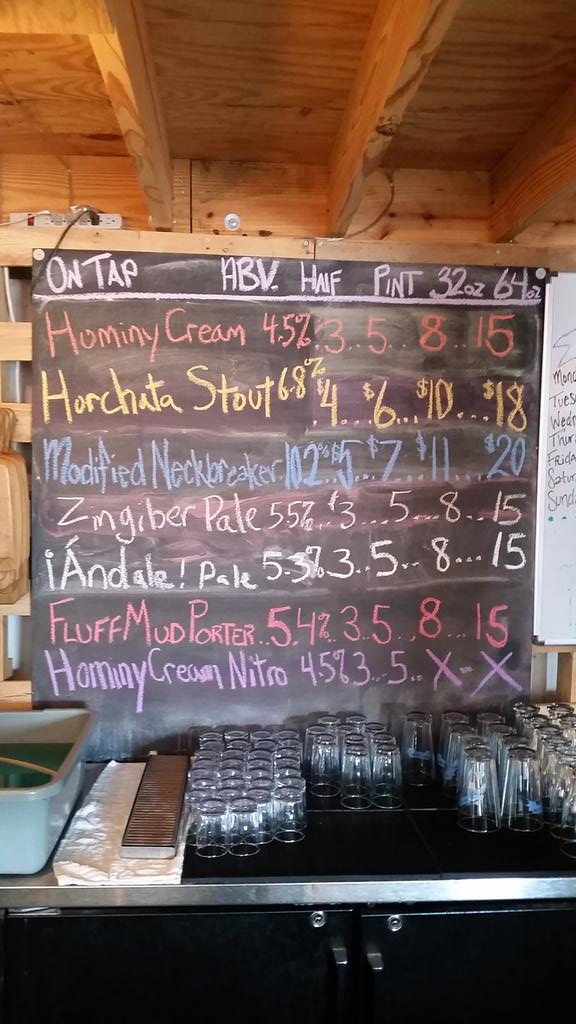 ON TAP ABV. HALF PINT 32oz 64oz
Hominy Cream 4.5% 3...5...8...15
Horchata Stout 6.8% $4...$6...$10...$18
Modified Neckbreaker 10.2% $5 $7 $11 $20
Zingiber Pale 5.5% $3...5...8...15
¡Ándale! Pale 5.3% 3...5...8...15
FLUFF MUD PORTER..5.4% 3..5..8...15
Hominy Cream Nitro 4.5% 3...5..X-X